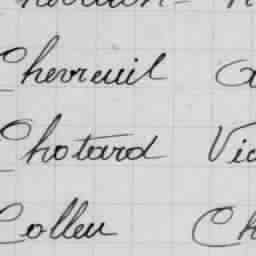 Chevreuil
Chotard Vic
Colleu Ch